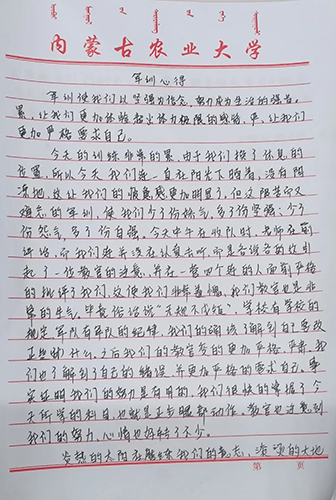 内蒙古农业大学
军训心得
军训使我们以坚强为信念，努力成为生活的强者。
累，让我们更加体验超出体力极限的感验，严，让我们
更加严格要求自己。
今天的训练非常的累，由于我们换了休息的
位置，所以今天我们连一直在阳光下晒着，没有阴
凉地，这让我们的疲惫感更加明显了，但这艰苦又
难忘的军训，使我们少了份娇气，多了份坚强，少了
份怨气，多了份自强，今天中午在收队时，老师在前
讲话，而我们连并没在认真去听，而是各说各的
起了一位教官的注意，并在一营四个连的人面前严格
的批评了我们，这使我们非常羞愧，我们教官也是非
常的生气，毕竟俗话说“无规不成矩”，学校有学校的
规定，军队有军队的纪律，我们的确该了解到自己要改
正些什么，之后我们的教官变的更加严格，严肃，我
们也了解到了自己的错误，并更加严格的要求自己，事
实证明我们的努力是有用的，我们很快的掌握了今
天所学的科目，也就是正步腿部动作，教官也注意到
我们的努力，心情也好转了不少。
炎热的太阳在酷我们的意志，滚烫的大地
第 页